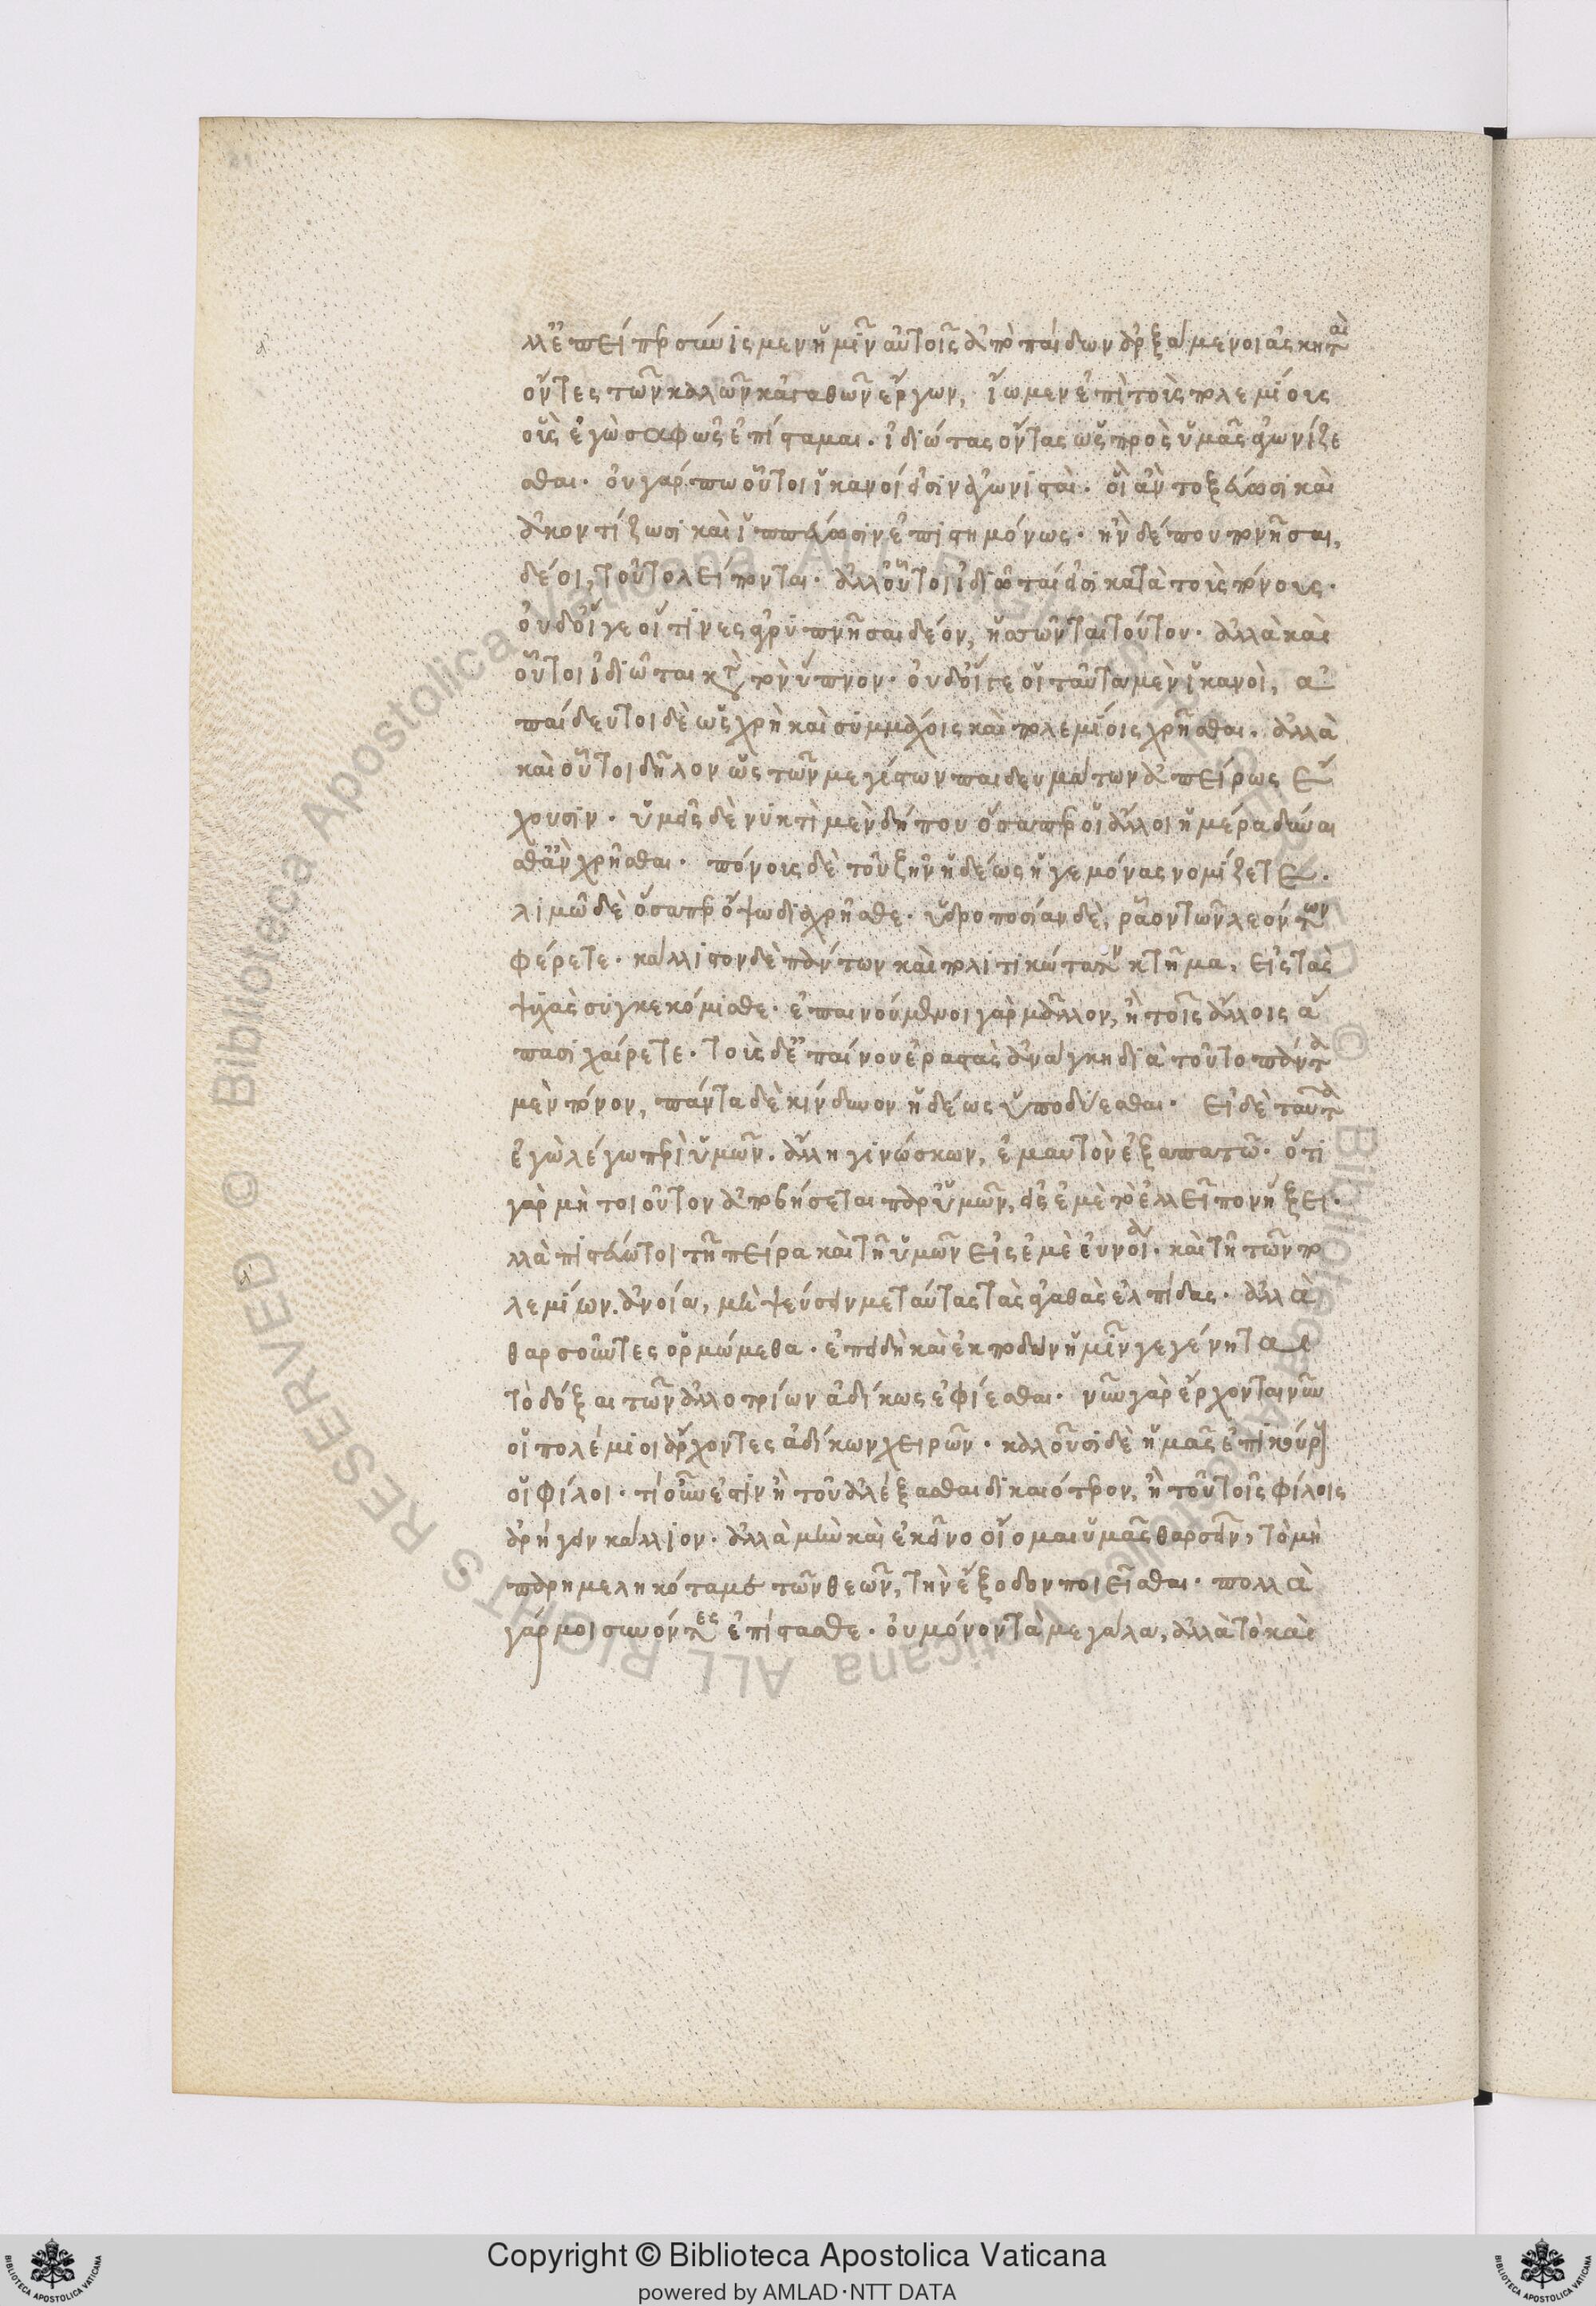 λλ' ἐπείπερ σύνισμεν ἡμῖν αὐτοῖς ἀπὸ παίδων ἀρξάμενοι ἀσκηταὶ
ὄντες τῶν καλῶν κἀγαθῶν ἔργων, ἴωμεν ἐπὶ τοὺς πολεμίους
οὓς ἐγὼ σαφῶς ἐπίσταμαι. ἰδιώτας ὄντας ὡς πρὸς ὑμᾶς ἀγωνίζε
σθαι. οὐ γάρ πω οὗτοι ἱκανοί εἰσιν ἀγωνισταί. οἳ ἂν τοξεύωσι καὶ
ἀκοντίζωσι καὶ ἱππεύωσιν ἐπιστημόνως. ἢν δέ που πονῆσαι,
δέοι, τούτο λείπονται. ἀλλ' οὗτοι ἰδιῶταί εἰσι κατὰ τοὺς πόνους.
οὐδ' οἵ γε οἵτινες ἀγρυπνῆσαι δέον, ἡσσῶνται τούτου. ἀλλὰ καὶ
οὗτοι ἰδιῶται κατὰ τὸν ὕπνον. οὐδ' οἵ γε οἱ ταῦτα μὲν ἱκανοὶ, ἀ
παίδευτοι δὲ ὡς χρὴ καὶ συμμάχοις καὶ πολεμίοις χρῆσθαι. ἀλλὰ
καὶ οὗτοι δῆλον ὡς τῶν μεγίστων παιδευμάτων ἀπείρως ἔ
χουσιν. ὑμεῖς δὲ νυκτὶ μὲν δήπου ὅσαπερ οἱ ἄλλοι ἡμέρα δύναι
σθ' ἂν χρῆσθαι. πόνους δὲ τοῦ ζῆν ἡδέως ἡγεμόνας νομίζετε.
λιμῶ δὲ ὅσαπερ ὄψω διαχρῆσθε. ὑδροποσίαν δὲ, ρᾶον τῶν λεόντων
φέρετε. κάλλιστον δὲ πάντων καὶ πολιτικώτατον κτῆμα, εἰς τὰς
ψυχὰς συγκεκόμισθε. ἐπαινούμενοι γὰρ μᾶλλον, ἢ τοῖς ἄλλοις ἅ
πασι χαίρετε. τοὺς δ' ἐπαίνου ἐραστὰς ἀνάγκη διὰ τοῦτο πάντα
μὲν πόνον, πάντα δὲ κίνδυνον ἡδέως ὑποδύεσθαι. εἰ δὲ ταῦτα
ἐγὼ λέγω περὶ ὑμῶν. ἄλλη γινώσκων, ἐμαυτὸν ἐξαπατῶ. ὅτι
γὰρ μὴ τοιοῦτον ἀποβήσεται παρ' ὑμῶν, εἰς ἐμὲ τὸ ἐλλεῖπον ἥξει.
λλὰ πιστεύω τοι τῆ πείρα καὶ τῆ ὑμῶν εἰς ἐμὲ εὐνοία. καὶ τῆ τῶν πο
λεμίων. ἀνοία, μὴ ψεύσειν με ταύτας τὰς ἀγαθὰς ἐλπίδας. ἀλλὰ
θαρσοῦντες ὁρμώμεθα. ἐπειδὴ καὶ ἐκποδὼν ἡμῖν γεγένηται
τὸ δόξαι τῶν ἀλλοτρίων ἀδίκως ἐφίεσθαι. νῦν γὰρ ἔρχονται νῦν
οἱ πολέμιοι ἄρχοντες ἀδίκων χειρῶν. καλοῦσι δὲ ἡμᾶς ἐπικούρους
οἱ φίλοι. τί οὖν ἐστιν ἢ τοῦ ἀλέξασθαι δικαιότερον, ἢ τοῦ τοῖς φίλοις
ἀρήγειν κάλλιον. ἀλλὰ μὴν καὶ ἐκεῖνο οἴομαι ὑμᾶς θαρσεῖν, τὸ μὴ
παρημεληκότα με τῶν θεῶν, τὴν ἔξοδον ποιεῖσθαι. πολλὰ
γάρ μοι συνόντες ἐπίστασθε. οὐ μόνον τὰ μεγάλα, ἀλλὰ τὸ καὶ
Copyright © Biblioteca Apostolica Vaticana
powered by AMLAD·NTT DATA